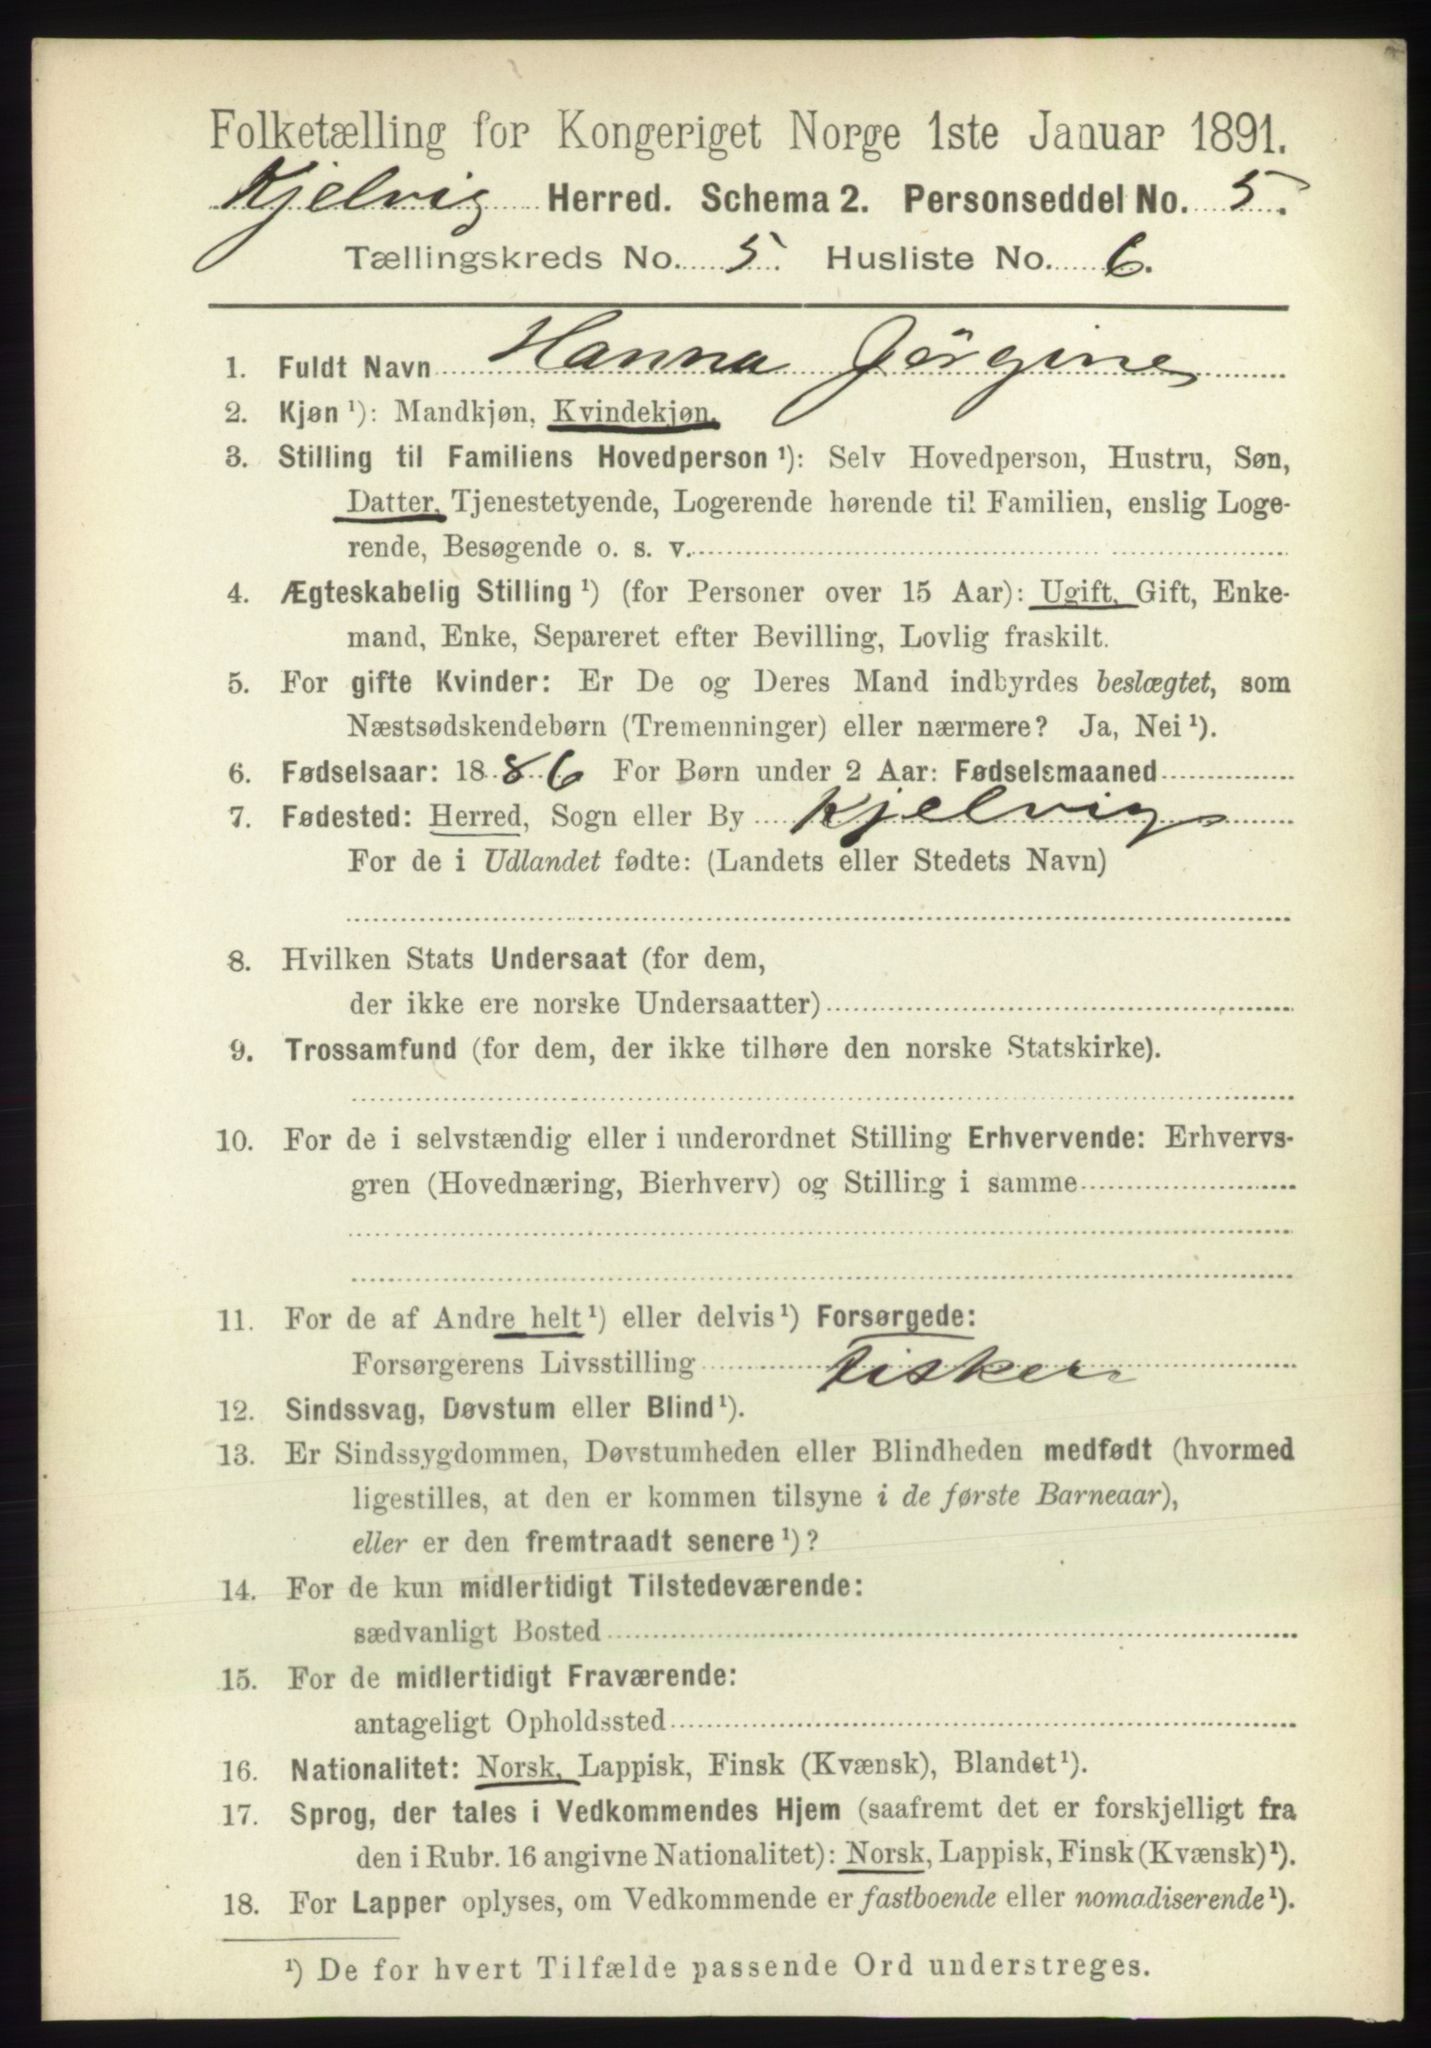 Folketælling for Kongeriget Norge 1ste Januar 1891.
Kjelvig Herred. Schema 2. Personseddel No. 5.
Tællingskreds No. 5. Husliste No. 6.
1. Fuldt Navn Hanna Jörgine
2. Kjøn ¹): Mandkjøn, Kvindekjøn.
3. Stilling til Familiens Hovedperson ¹): Selv Hovedperson, Hustru, Søn,
Datter, Tjenestetyende, Logerende hørende til Familien, enslig Loge-
rende, Besøgende o. s. v.
4. Ægteskabelig Stilling ¹) (for Personer over 15 Aar): Ugift, Gift, Enke-
mand, Enke, Separeret efter Bevilling, Lovlig fraskilt.
5. For gifte Kvinder: Er De og Deres Mand indbyrdes beslægtet, som
Næstsødskendebørn (Tremenninger) eller nærmere? Ja, Nei ¹).
6. Fødselsaar: 1886 For Børn under 2 Aar: Fødselsmaaned
7. Fødested: Herred, Sogn eller By Kjelvig
For de i Udlandet fødte: (Landets eller Stedets Navn)
8. Hvilken Stats Undersaat (for dem,
der ikke ere norske Undersaatter)
9. Trossamfund (for dem, der ikke tilhøre den norske Statskirke).
10. For de i selvstændig eller i underordnet Stilling Erhvervende: Erhvervs-
gren (Hovednæring, Bierhverv) og Stilling i samme
11. For de af Andre helt ¹) eller delvis ¹) Forsørgede:
Forsørgerens Livsstilling Fisker
12. Sindssvag, Døvstum eller Blind ¹).
13. Er Sindssygdommen, Døvstumheden eller Blindheden medfødt (hvormed
ligestilles, at den er kommen tilsyne i de første Barneaar),
eller er den fremtraadt senere ¹)?
14. For de kun midlertidigt Tilstedeværende:
sædvanligt Bosted
15. For de midlertidigt Fraværende:
antageligt Opholdssted
16. Nationalitet: Norsk, Lappisk, Finsk (Kvænsk), Blandet ¹).
17. Sprog, der tales i Vedkommendes Hjem (saafremt det er forskjelligt fra
den i Rubr. 16 angivne Nationalitet): Norsk, Lappisk, Finsk (Kvænsk) ¹).
18. For Lapper oplyses, om Vedkommende er fastboende eller nomadiserende ¹).
¹) De for hvert Tilfælde passende Ord understreges.